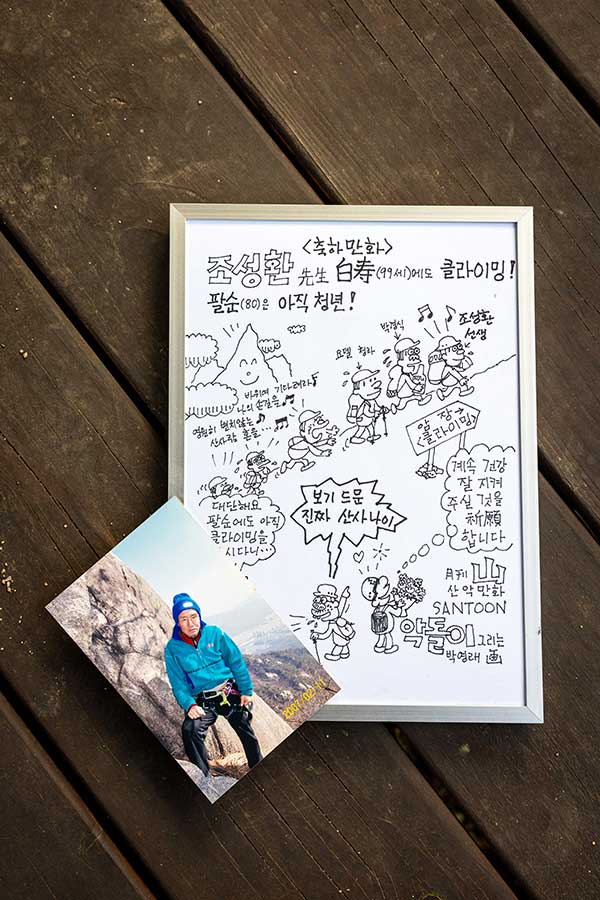 <축하만화>
조성환 先生 白寿(99세)에도 클라이밍!
팔순(80)은 아직 청년!
조성환
선생
박경식
요델
바위여 기다려라
나의 손길을
영원히 변치않는
산사람 혼을
암장
<클라이밍>
계속 건강
잘 지켜
주실 것을
祈願
합니다
대단해요
팔순에도 아직
클라이밍을
시다니…
보기 드문
진짜 산사나이
月刊 山
산악만화
SANTOON
악돌이 그리는
박영래 画